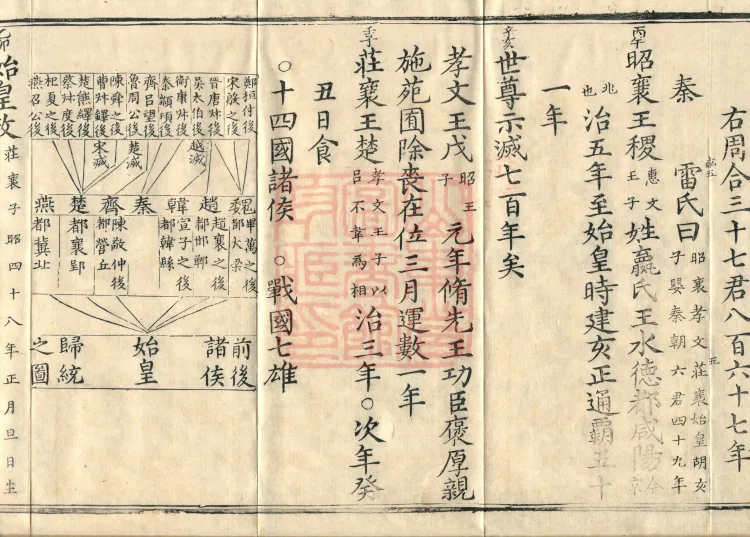 右周合三十七君八百六十七年
秦　雷氏曰　昭襄孝文莊襄始皇胡亥子嬰秦朝六君四十九年
丙午昭襄王稷惠文王子姓嬴氏王水德都咸陽今京
兆也治五年至始皇時建亥正通霸五十
一年
辛亥世尊示滅七百年矣
孝文王戊昭王子元年脩先王功臣褒厚親
施苑囿除喪在位三月運數一年
壬子莊襄王楚孝文王子以呂不韋為相治三年○次年癸
丑日食
○十四國諸侯　○戰國七雄
宋啟之後
晉唐叔後
吳太伯後
衛康叔後
秦顓頊後
齊呂望後
魯周公後
陳舜之後
曹叔鐸後
楚熊繹後
蔡叔度後
杞夏之後
燕召公後
越滅
楚滅
宋滅
魏
畢萬之後
都大梁
趙
趙襄之後
都邯鄲
韓
宣子之後
都韓縣
秦
齊
陳敬仲後
都營丘
楚
都襄郢
燕
都冀北
前後
諸侯
始皇
歸統
之圖
乙卯始皇政莊襄子昭四十八年正月旦日生